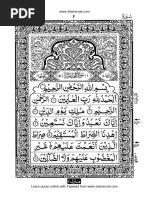 www.islamicnet.com
٢
بِسْمِ اللهِ الرَّحْمٰنِ الرَّحِيْمِ
اَلْحَمْدُ لِلّٰهِ رَبِّ الْعٰلَمِيْنَ الرَّحْمٰنِ
الرَّحِيْمِ مٰلِكِ يَوْمِ الدِّيْنِ
اِيَّاكَ نَعْبُدُ وَاِيَّاكَ نَسْتَعِيْنُ
اِهْدِنَا الصِّرَاطَ الْمُسْتَقِيْمَ صِرَاطَ
الَّذِيْنَ اَنْعَمْتَ عَلَيْهِمْ غَيْرِ
الْمَغْضُوْبِ عَلَيْهِمْ وَلَا الضَّآلِّيْنَ
Learn quran online with Tajweed from www.islamicnet.com